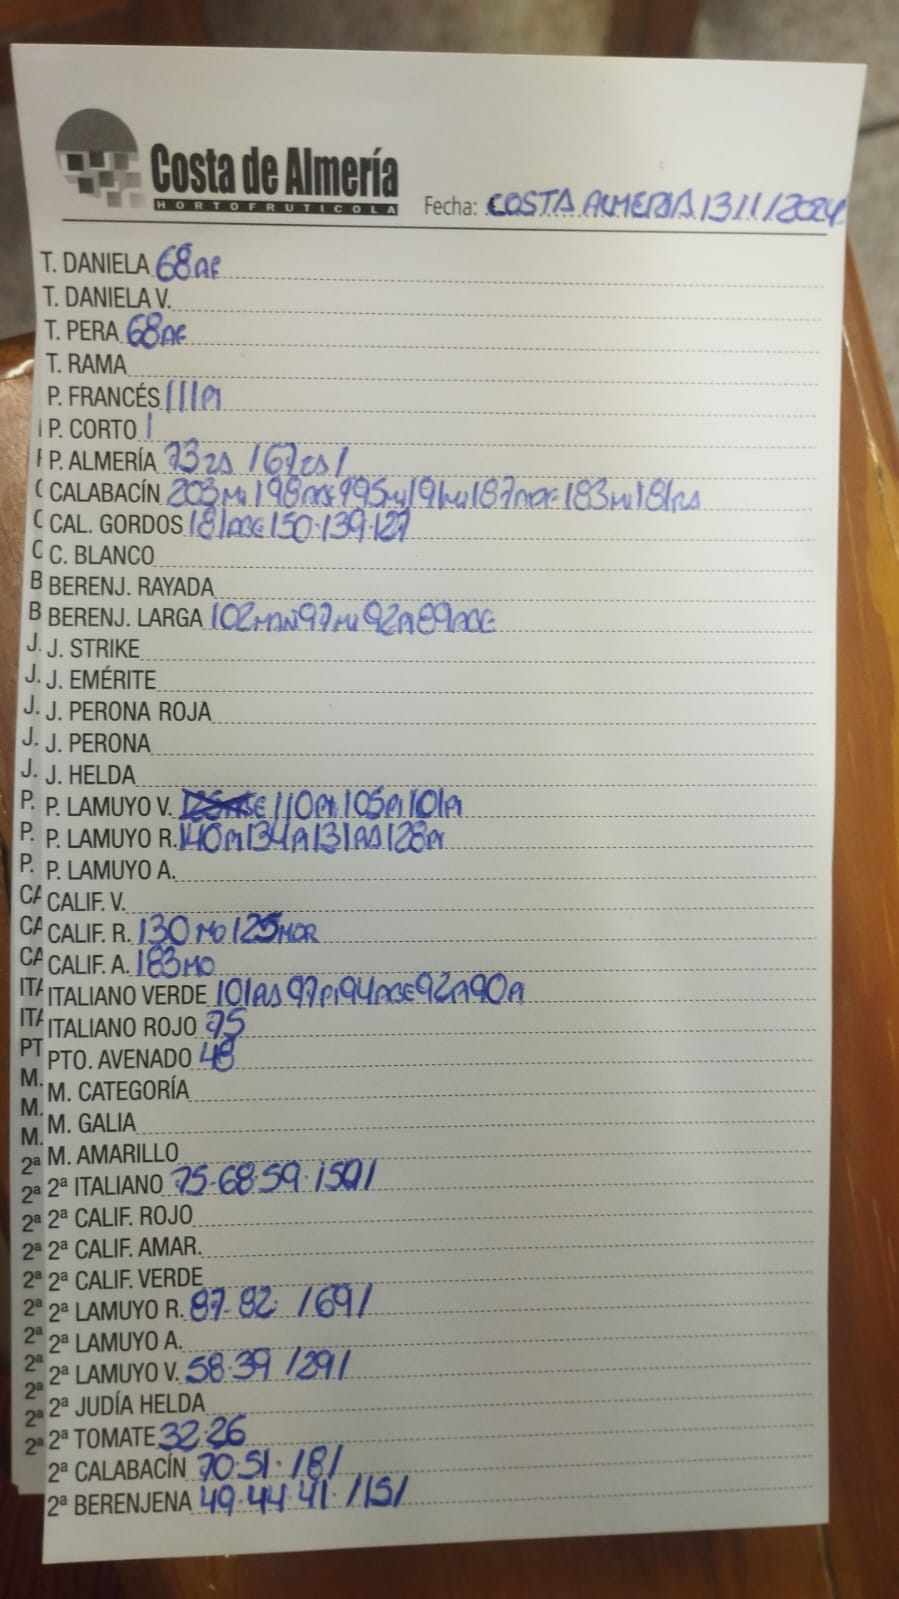 Costa de Almería
HORTOFRUTICOLA
Fecha: COSTA ALMERIA 13/11/2024
T. DANIELA 68AE
T. DANIELA V.
T. PERA 68AE
T. RAMA
P. FRANCÉS 111PI
P. CORTO
P. ALMERÍA 73 /67 /
CALABACÍN 203MU 198AGE 195MU 191MU 187AGE 183MU 181
CAL. GORDOS 181AGE 150·139·127
C. BLANCO
BERENJ. RAYADA
BERENJ. LARGA 102MAN 97MU 92PI 89AGE
J. STRIKE
J. EMÉRITE
J. PERONA ROJA
J. PERONA
J. HELDA
P. LAMUYO V. 110PI 105PI 101PI
P. LAMUYO R. 140PI 134PI 131 128PI
P. LAMUYO A.
CALIF. V.
CALIF. R. 130MO 125MOR
CALIF. A. 183MO
ITALIANO VERDE 101 97PI 94AGE 92PI 90PI
ITALIANO ROJO 75
PTO. AVENADO 48
M. CATEGORÍA
M. GALIA
M. AMARILLO
2ª ITALIANO 75·68·59· /50/
2ª CALIF. ROJO
2ª CALIF. AMAR.
2ª CALIF. VERDE
2ª LAMUYO R. 87·82· /69/
2ª LAMUYO A.
2ª LAMUYO V. 58·39 /29/
2ª JUDÍA HELDA
2ª TOMATE 32·26
2ª CALABACÍN 70·51· /8/
2ª BERENJENA 49·44·41· /15/